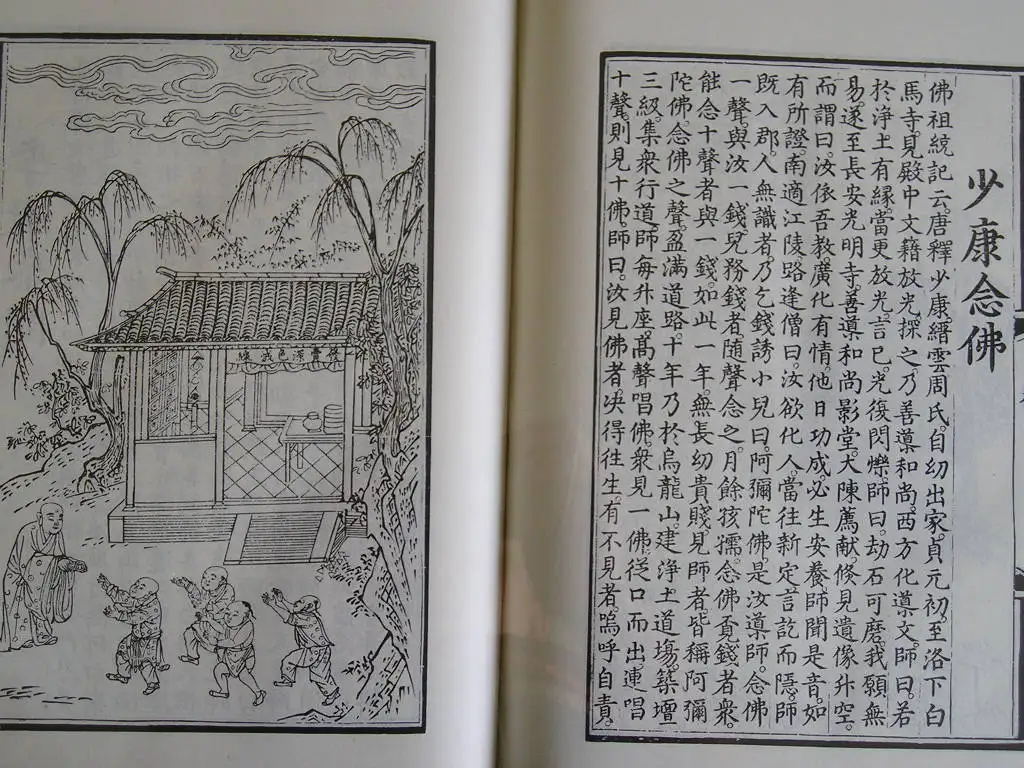 少康念佛
佛祖統記云唐釋少康縉雲周氏。自幼出家。貞元初。至洛下白
馬寺。見殿中文籍放光。探之。乃善導和尚。西方化導文。師曰若
於淨土有緣當更放光。言已。光後閃爍。師曰。劫石可磨。我願無
易。遂至長安光明寺。善導和尚影堂。大陳薦献。倏見遺像升空。
而謂曰。汝依吾教廣化有情。他日功成。必生安養。師聞是音。如
有所證。南適江陵。路逢僧曰。汝欲化人。當往新定。言訖而隱。師
既入郡。人無識者。乃乞錢誘小兒曰。阿彌陀佛是汝導師。念佛
一聲。與汝一錢。兒務錢者。隨聲念之。月餘。孩孺念佛覔錢者衆。
能念十聲者。與一錢。如此一年。無長幼貴賤。見師者皆稱阿彌
陀佛。念佛之聲。盈滿道路。十年。乃於烏龍山。建淨土道場。築壇
三級。集衆行道。師每升座。高聲唱佛。衆見一佛。從口而出。連唱
十聲。則見十佛。師曰。汝見佛者。决得往生。有不見者。嗚呼自責。